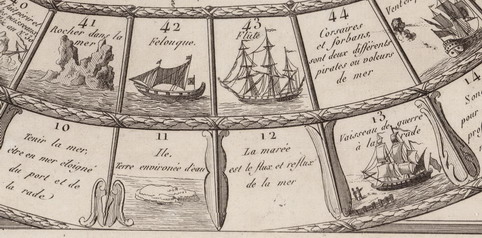 40
41
Rocher dans la
mer
42
Felouque.
43
Flute
44
Corsaires
et forbans,
sont deux differents
pirates ou voleurs
de mer
Vent
10
Tenir la mer,
être en mer éloigné
du port et de
la rade.
11
Ile,
terre environée d'eau
12
La marée
est le flux et reflux
de la mer
13
Vaisseau de guerre
à la rade
14
pour